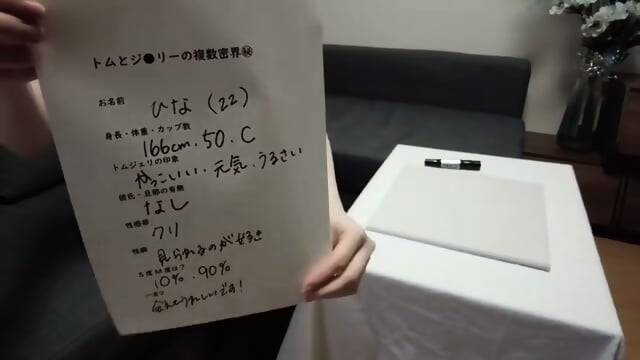 トムとジ●リーの複数密界㊙
お名前
ひな(22)
身長・体重・カップ数
166cm.50.C
トムジェリの印象
かっこいい.元気.うるさい
彼氏・旦那の有無
なし
性感帯
クリ
性癖
見られるのが好き
S度M度は?
10%.90%
一言♡
会えてうれしいです!